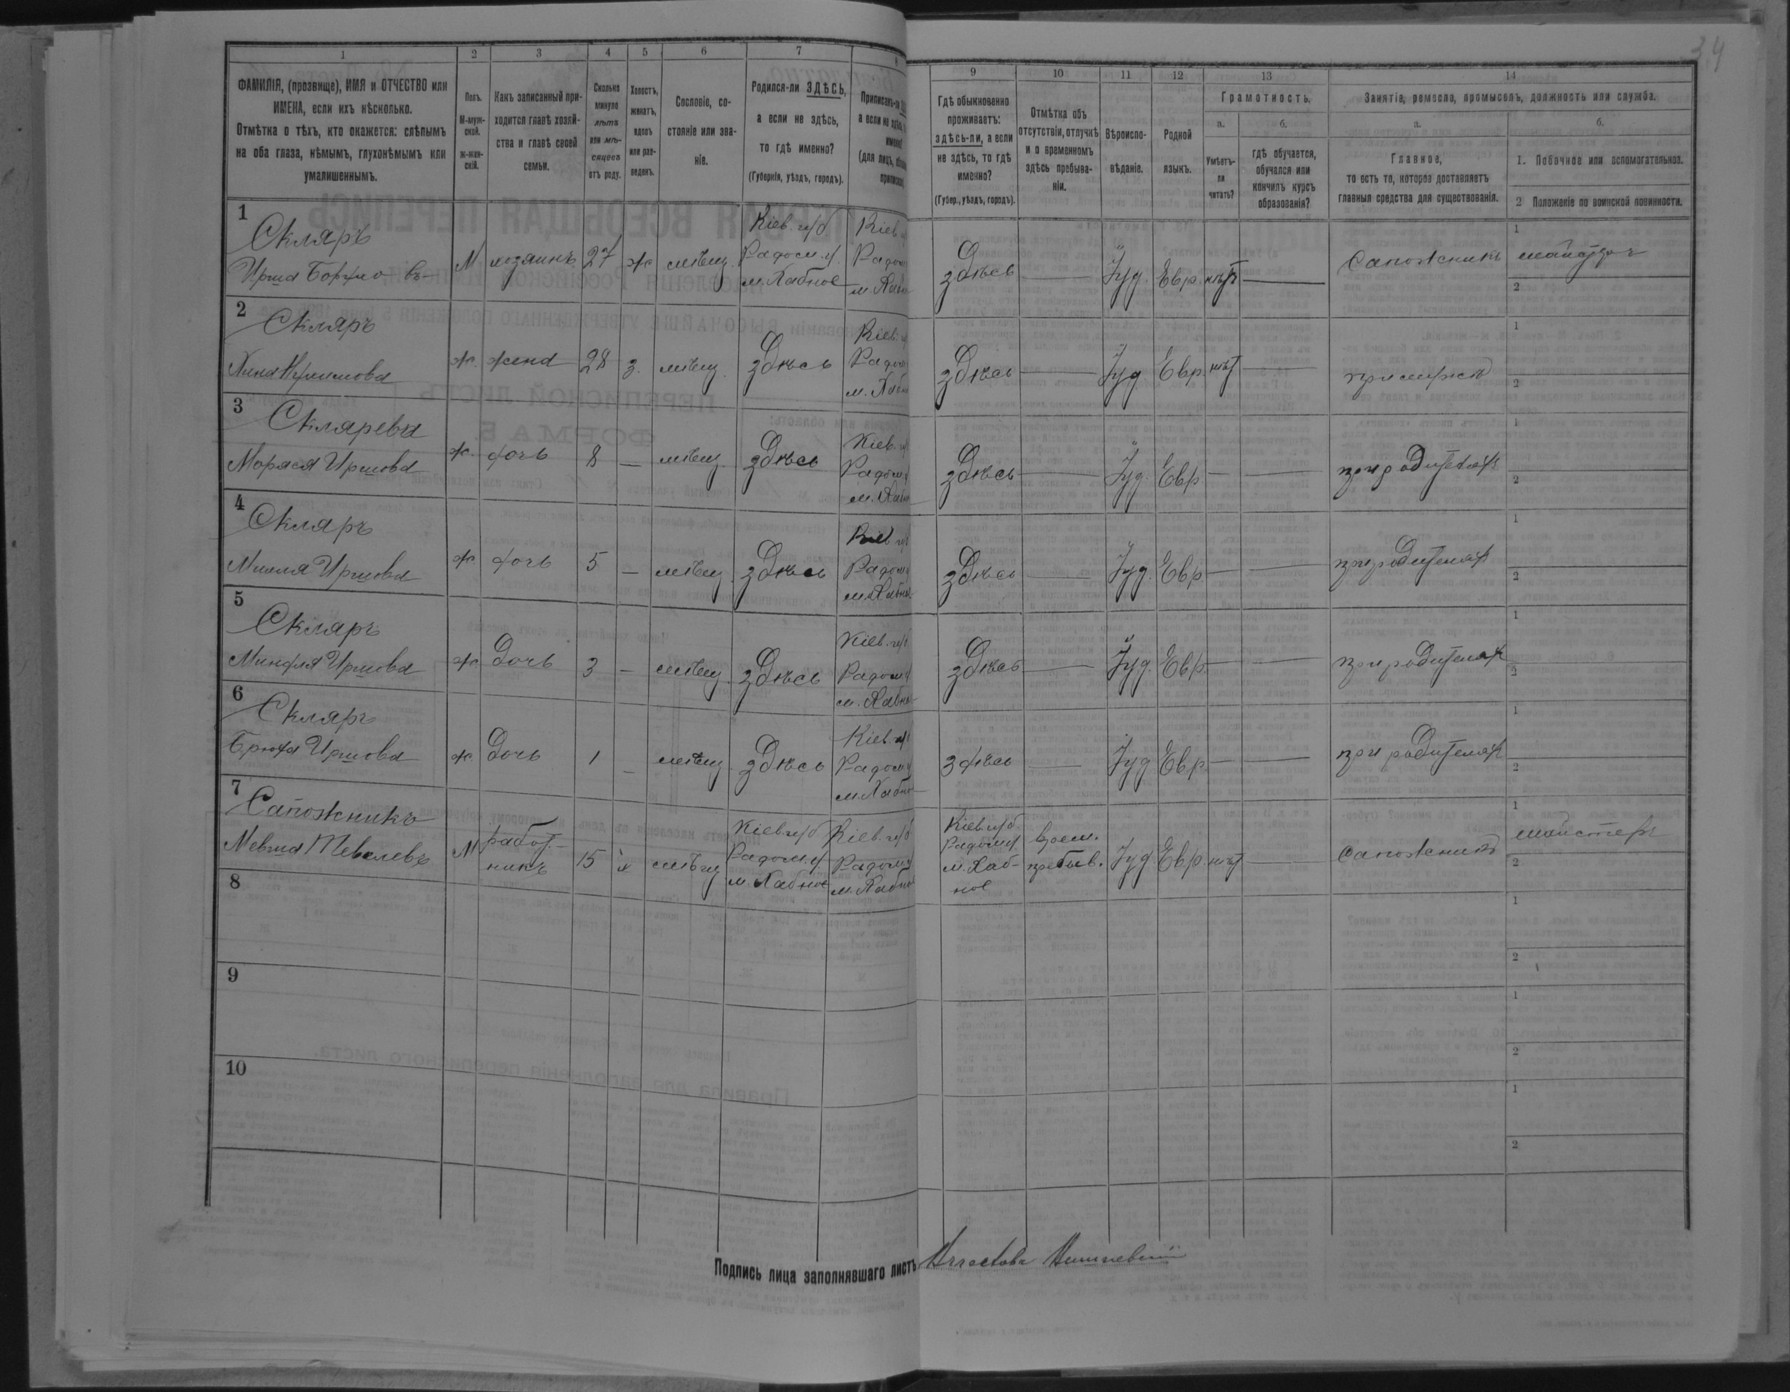 34
1
2
3
4
5
6
7
8
9
10
11
12
13
14
ФАМИЛІЯ, (прозвище), ИМЯ и ОТЧЕСТВО или
ИМЕНА, если ихъ нѣсколько.
Отмѣтка о тѣхъ, кто окажется: слѣпымъ
на оба глаза, нѣмымъ, глухонѣмымъ или
умалишеннымъ.
Полъ.
М-муж-
ской.
ж-жен-
скій.
Какъ записанный при-
ходится главѣ хозяй-
ства и главѣ своей
семьи.
Сколько
минуло
лѣтъ
или мѣ-
сяцевъ
отъ роду.
Холостъ,
женатъ,
вдовъ
или раз-
веденъ.
Сословіе, со-
стояніе или зва-
ніе.
Родился-ли ЗДѢСЬ,
а если не здѣсь,
то гдѣ именно?
(Губернія, уѣздъ, городъ).
Гдѣ обыкновенно
проживаетъ:
здѣсь-ли, а если
не здѣсь, то гдѣ
именно?
(Губер., уѣздъ, городъ).
Отмѣтка объ
отсутствіи, отлучкѣ
и о временномъ
здѣсь пребыва-
ніи.
Вѣроиспо-
вѣданіе.
Родной
языкъ.
Грамотность.
а.
б.
Умѣетъ-
ли
читать?
гдѣ обучается,
обучался или
кончилъ курсъ
образованія?
Занятіе, ремесло, промыселъ, должность или служба.
а.
б.
Главное,
то есть то, которое доставляетъ
главныя средства для существованія.
1. Побочное или вспомогательное.
2 Положеніе по воинской повинности.
1
Скляръ
Ирша
М хозяинъ 27 ж мѣщ.
Кіев. губ
Радом. у
м. Хабное
Кіев.
Радом
м. Хабн
здѣсь
Іуд. Евр. нѣтъ
Сапожникъ
1
2
2
Скляръ
ж. жена 28 з. мѣщ. здѣсь
Кіев.
Радом
м. Хабн
здѣсь
Іуд Евр. нѣт
при мужѣ
1
2
3
Склярева
Иршова
ж. дочь 8 — мѣщ здѣсь
Кіев.
Радом
м. Хабн
здѣсь
Іуд. Евр
при родителях
1
2
4
Скляръ
Иршова
ж. дочь 5 — мѣщ здѣсь
Кіев
Радом
м. Хабн
здѣсь
Іуд. Евр.
при родителях
1
2
5
Скляръ
Миндля Иршова
ж. Дочь 3 — мѣщ здѣсь
Кіев. губ
Радом у
м. Хабн
здѣсь
Іуд. Евр.
при родителях
1
2
6
Скляръ
Брюха Иршова
ж. Дочь 1 — мѣщ здѣсь
Кіев. у
Радом у
м. Хабн
здѣсь
Іуд Евр
при родителях
1
2
7
Сапожникъ
Мевша Тевелевъ
М работ-
никъ
15 х мѣщ
Кіев губ
Радом. у
м. Хабное
Кіев. губ
Радом у
м. Хабн
Кіев губ
Радом у
м. Хаб-
ное
врем.
пребыв.
Іуд Евр нѣт
Сапожникъ
майстеръ
1
2
8
1
2
9
1
2
10
1
2
Подпись лица заполнявшаго листъ